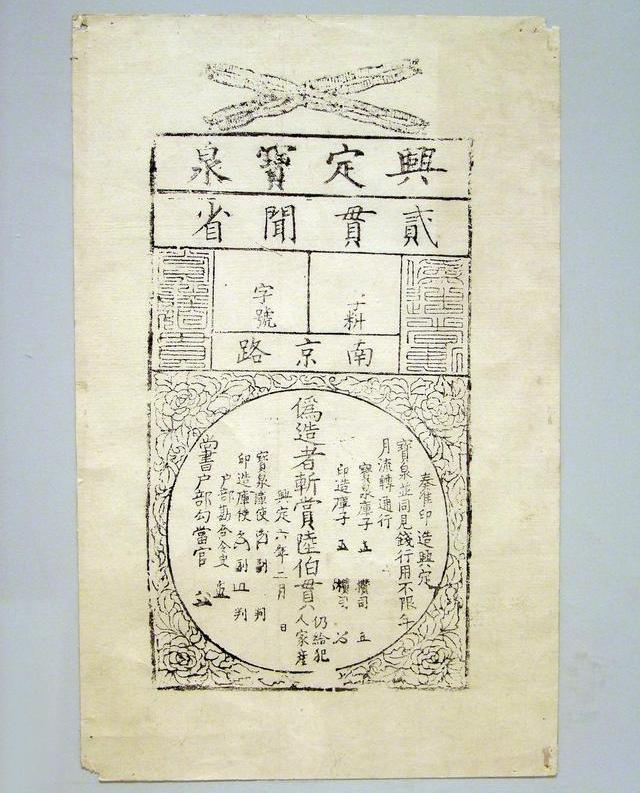 興定寶泉
貳貫聞省
字料
字號
南京路
奏准印造興定
寶泉並同見錢行用不限年
月流轉通行
寶泉庫子 攢司
印造庫子 攢司
偽造者斬賞陸伯貫仍給犯人家產
興定六年二月 日
寶泉庫使 副 判
印造庫使 副 判
戶部勘合令史
尚書戶部勾當官